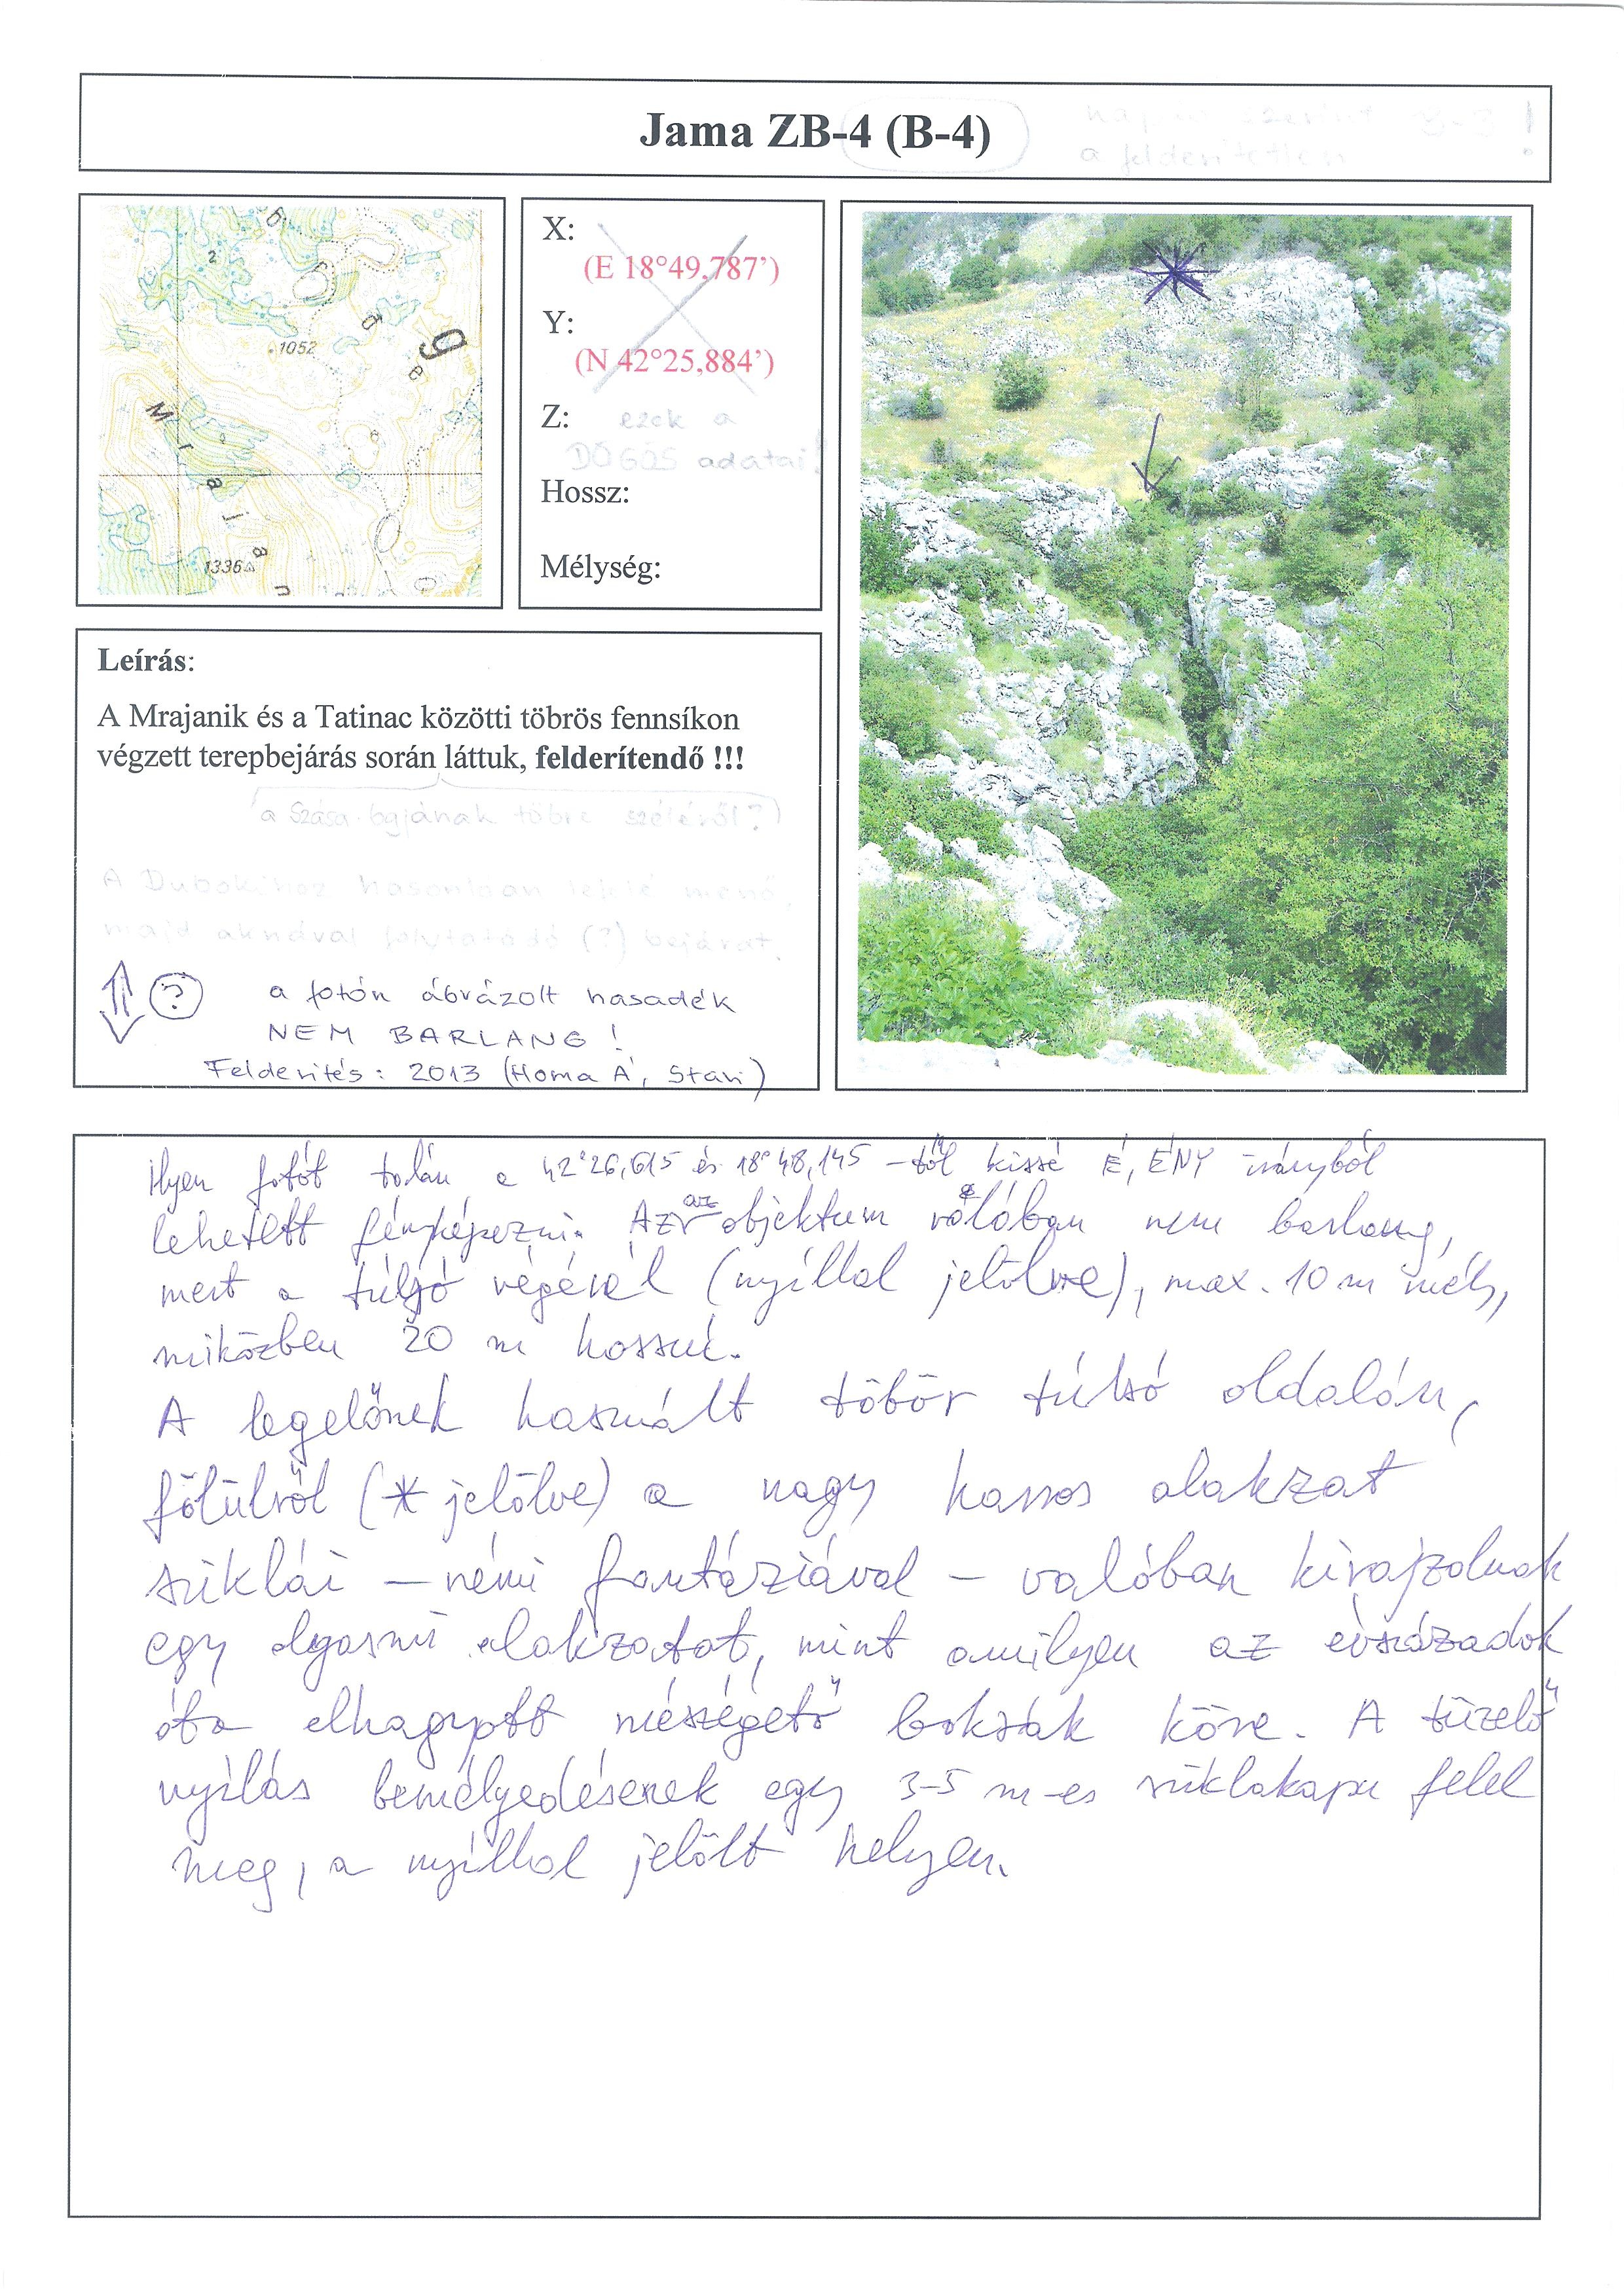 Jama ZB-4 (B-4)
napló szerint B-3 !
a felderítetlen
2
1052
g
M r a j a n
1336
X:
(E 18°49,787’)
Y:
(N 42°25,884’)
Z: ezek a
DÖGÖS adatai!
Hossz:
Mélység:
Leírás:
A Mrajanik és a Tatinac közötti töbrös fennsíkon
végzett terepbejárás során láttuk, felderítendő !!!
(a Szása-bgjának töbre széléről?)
A Dubokihoz hasonlóan lefelé menő,
majd aknával folytatódó (?) bejárat.
? a fotón ábrázolt hasadék
NEM BARLANG !
Felderítés: 2013 (Homa Á, Stari)
Ilyen fotót talán a 42°26,615 és 18°48,145 -től kissé É, ÉNY irányból
lehetett fényképezni. Az az objektum valóban nem barlang,
mert a túlsó végénél (nyíllal jelölve), max. 10 m mély,
miközben 20 m hosszú.
A legelőnek használt töbör túlsó oldalán,
fölülről (* jelölve) a nagy karros alakzat
sziklái – némi fantáziával – valóban kirajzolnak
egy olyasmi alakzatot, mint amilyen az évszázadok
óta elhagyott mészégető boksák köre. A tüzelő
nyílás bemélyedésenek egy 3-5 m-es sziklakapu felel
meg, a nyíllal jelölt helyen.